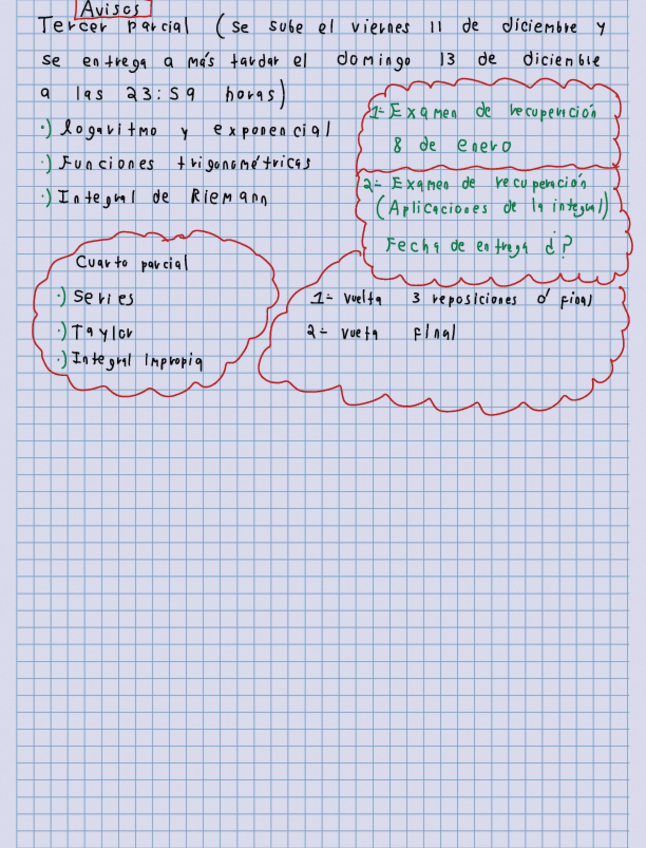 Avisos
Tercer parcial (se sube el viernes 11 de diciembre y
se entrega a más tardar el domingo 13 de diciembre
a las 23:59 horas)
·) logaritmo y exponencial
·) Funciones trigonométricas
·) Integral de Riemann
1- Examen de recuperación
8 de enero
2- Examen de recuperación
(Aplicaciones de la integral)
Fecha de entrega ¿?
Cuarto parcial
·) Series
·) Taylor
·) Integral Impropia
1- vuelta 3 reposiciones ó final
2- vueta final